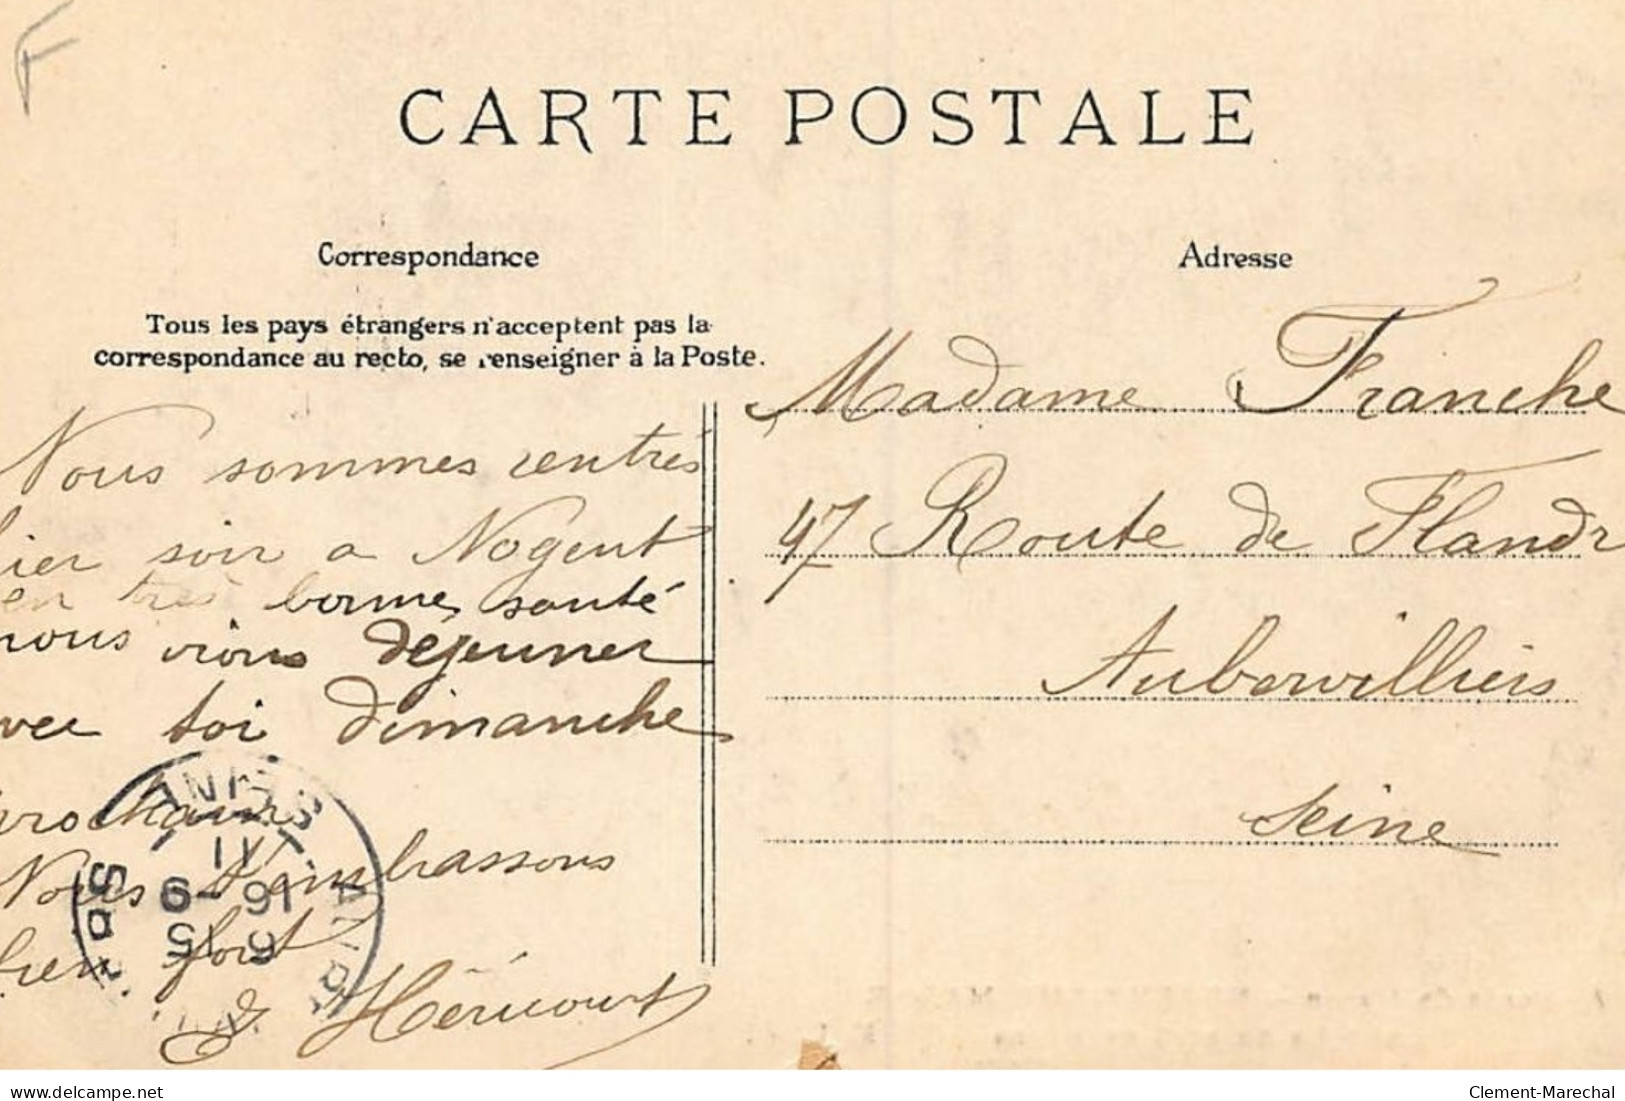 F
CARTE POSTALE
Correspondance
Tous les pays étrangers n'acceptent pas la
correspondance au recto, se renseigner à la Poste.
Nous sommes rentrés
hier soir a Nogent
en très bonne santé
nous irons déjeuner
avec toi dimanche
prochain
Nous t'embrassons
bien fort
Héricourt
Adresse
Madame Franche
47 Route de Flandr
Aubervilliers
Seine
SEINE
www.delcampe.net
Clement-Marechal